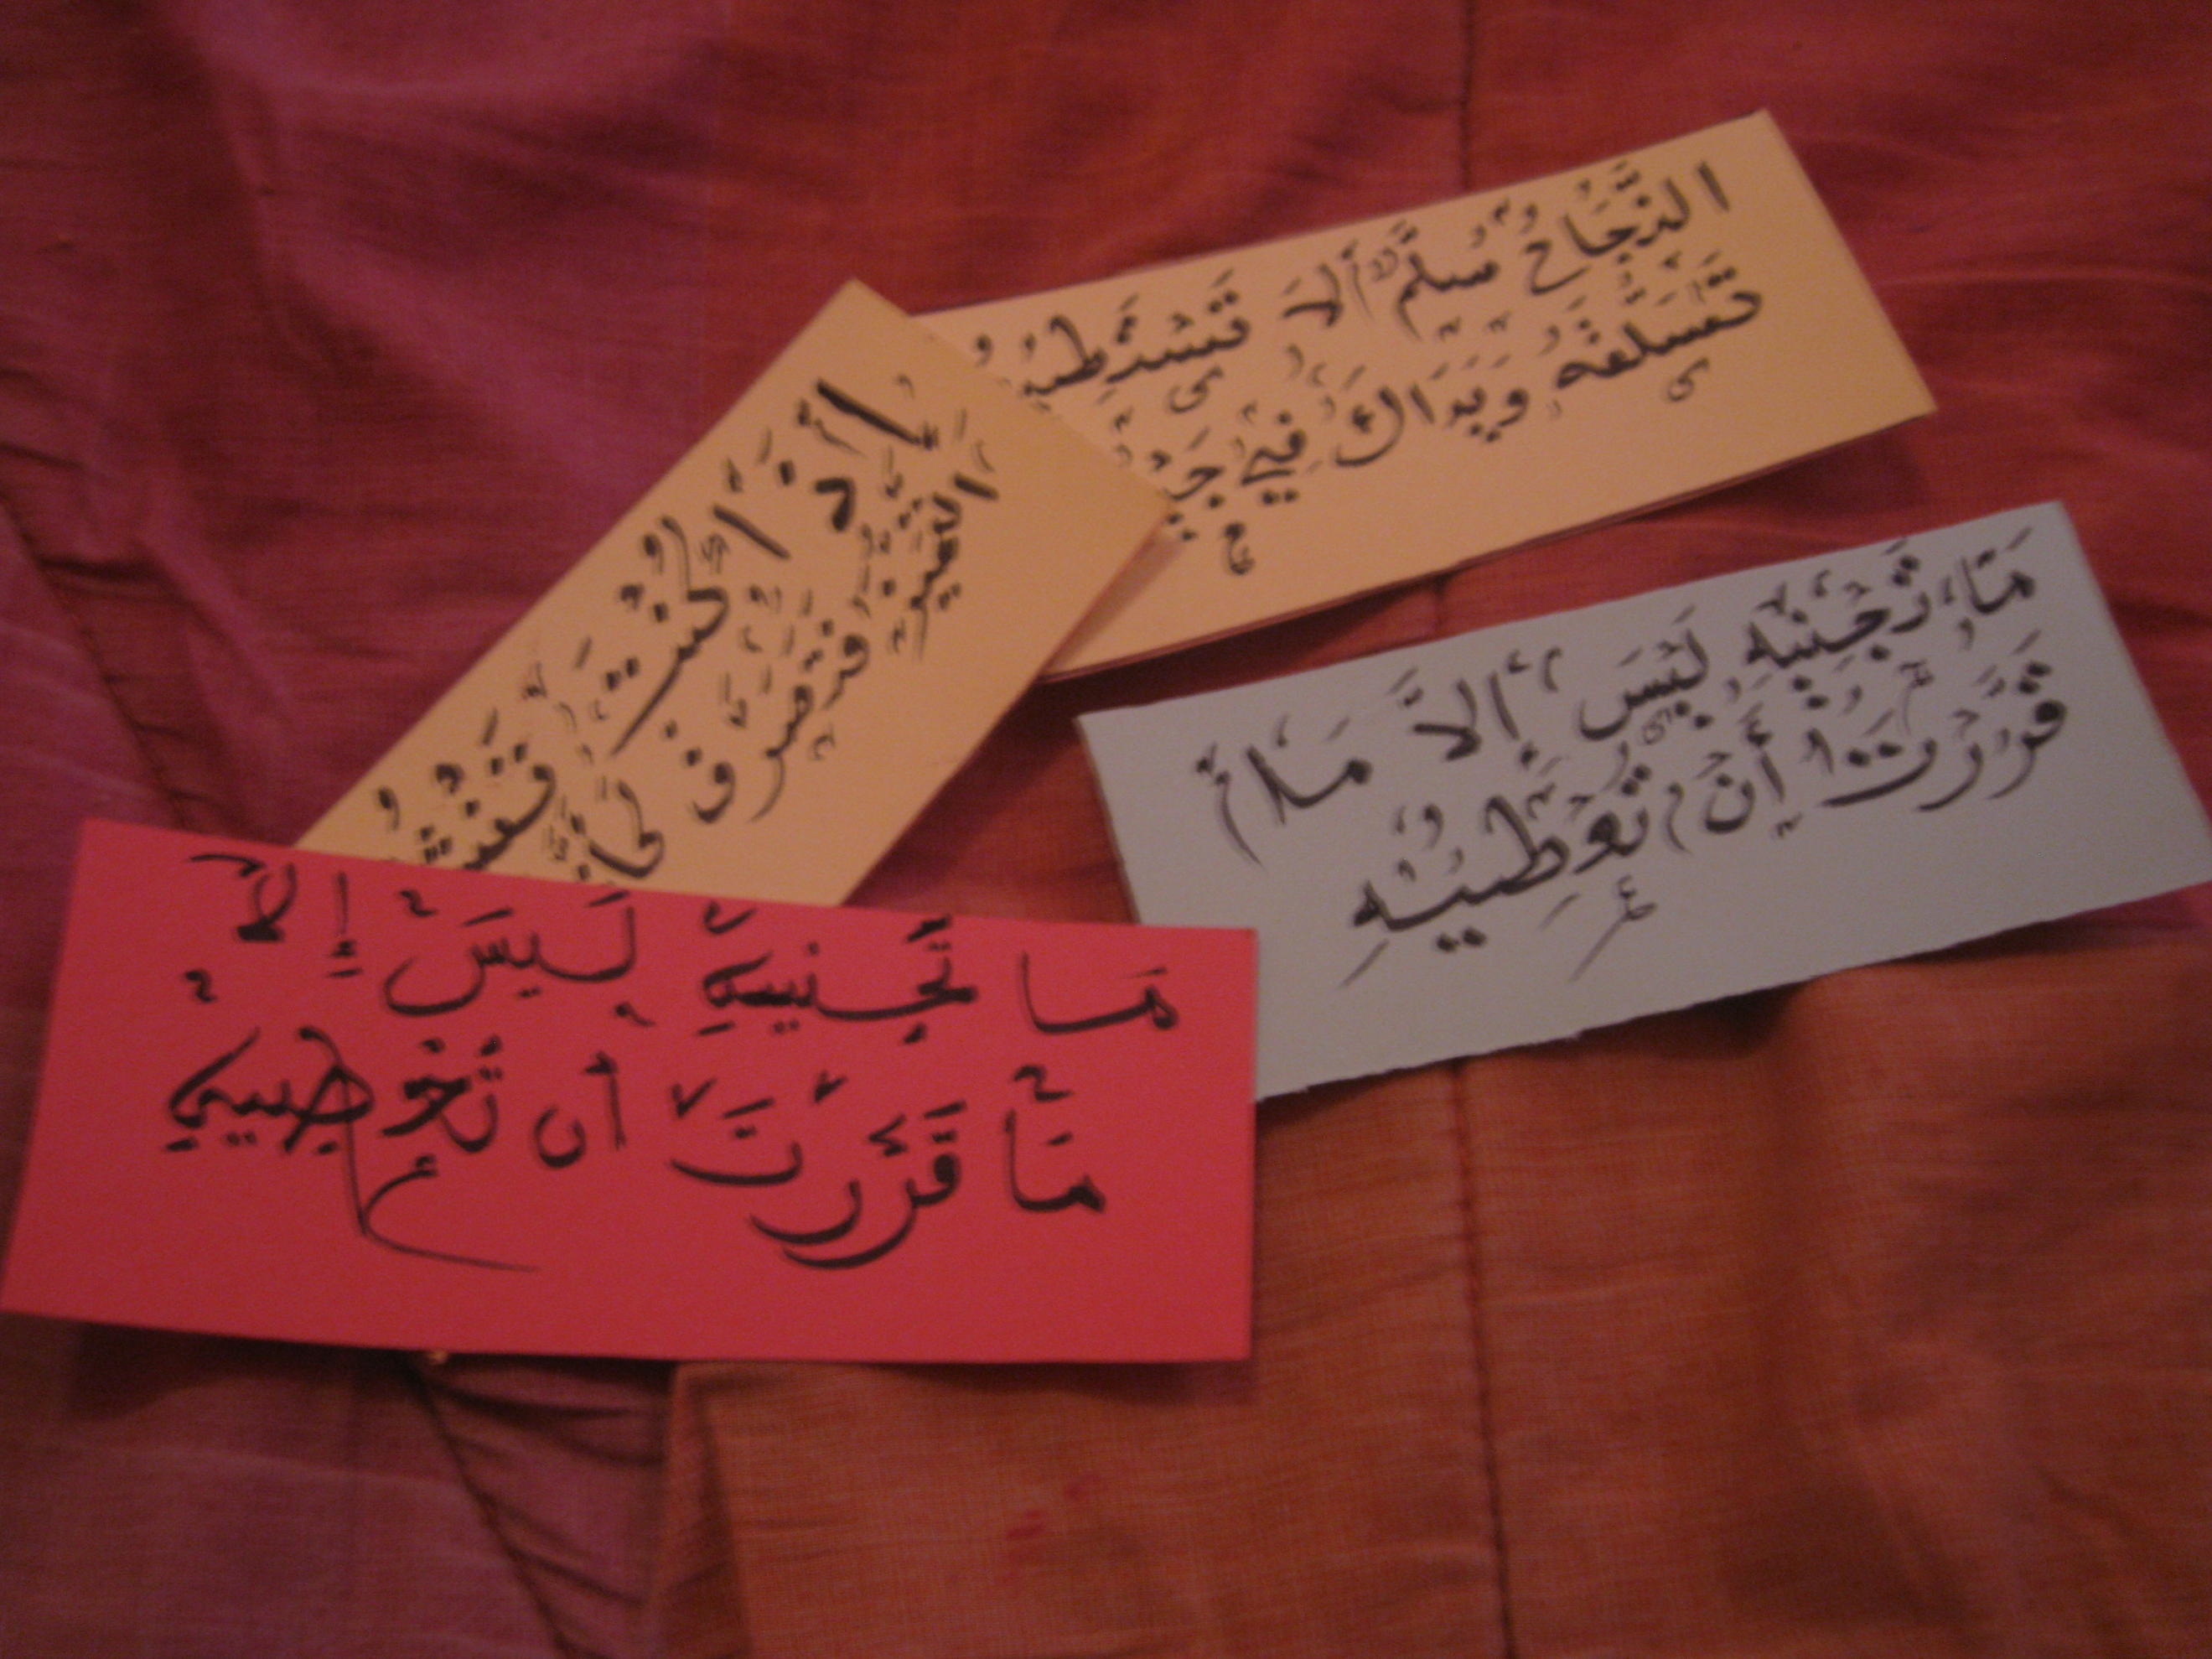 النَّجَاحُ سُلَّمٌ أَلَا تَسْتَطِيْـ
تَسَلُّقَهُ وَيَدَاكَ فِي جَيْبـ
إِذَا كُنْتَ
التَّمَيُّز فَتَصَرَّف
مَا تَجْنِيْهِ لَيْسَ إِلَّا مَا
قَرَّرْتَ أَنْ تُعْطِيْهِ
مَا تَجْنِيهِ لَيْسَ إِلَّا
مَا قَرَّرْتَ أَن تُعْطِيهِ